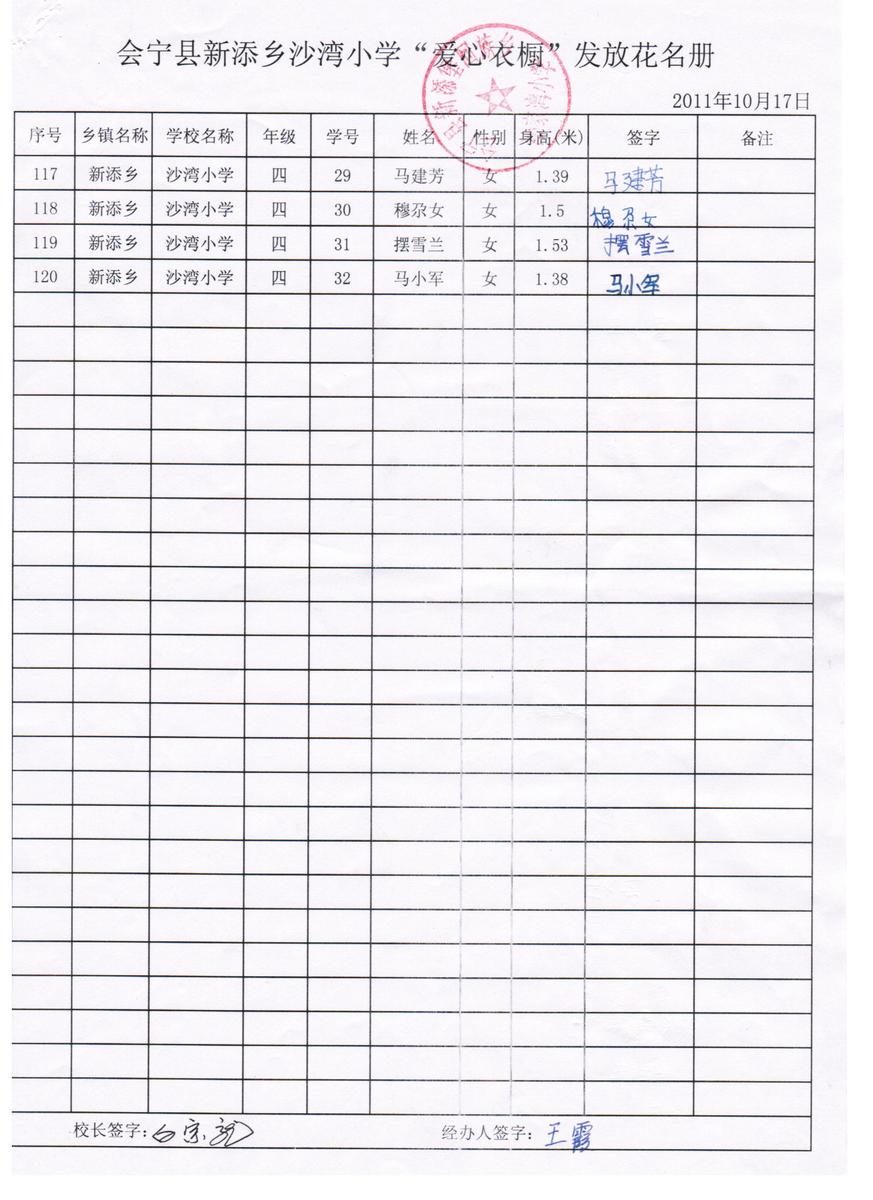 会宁县新添乡沙湾小学“爱心衣橱”发放花名册
2011年10月17日
序号 乡镇名称 学校名称 年级 学号 姓名 性别 身高(米) 签字 备注
117 新添乡 沙湾小学 四 29 马建芳 女 1.39 马建芳
118 新添乡 沙湾小学 四 30 穆尕女 女 1.5 穆尕女
119 新添乡 沙湾小学 四 31 摆雪兰 女 1.53 摆雪兰
120 新添乡 沙湾小学 四 32 马小军 女 1.38 马小军
校长签字: 经办人签字: 王霞